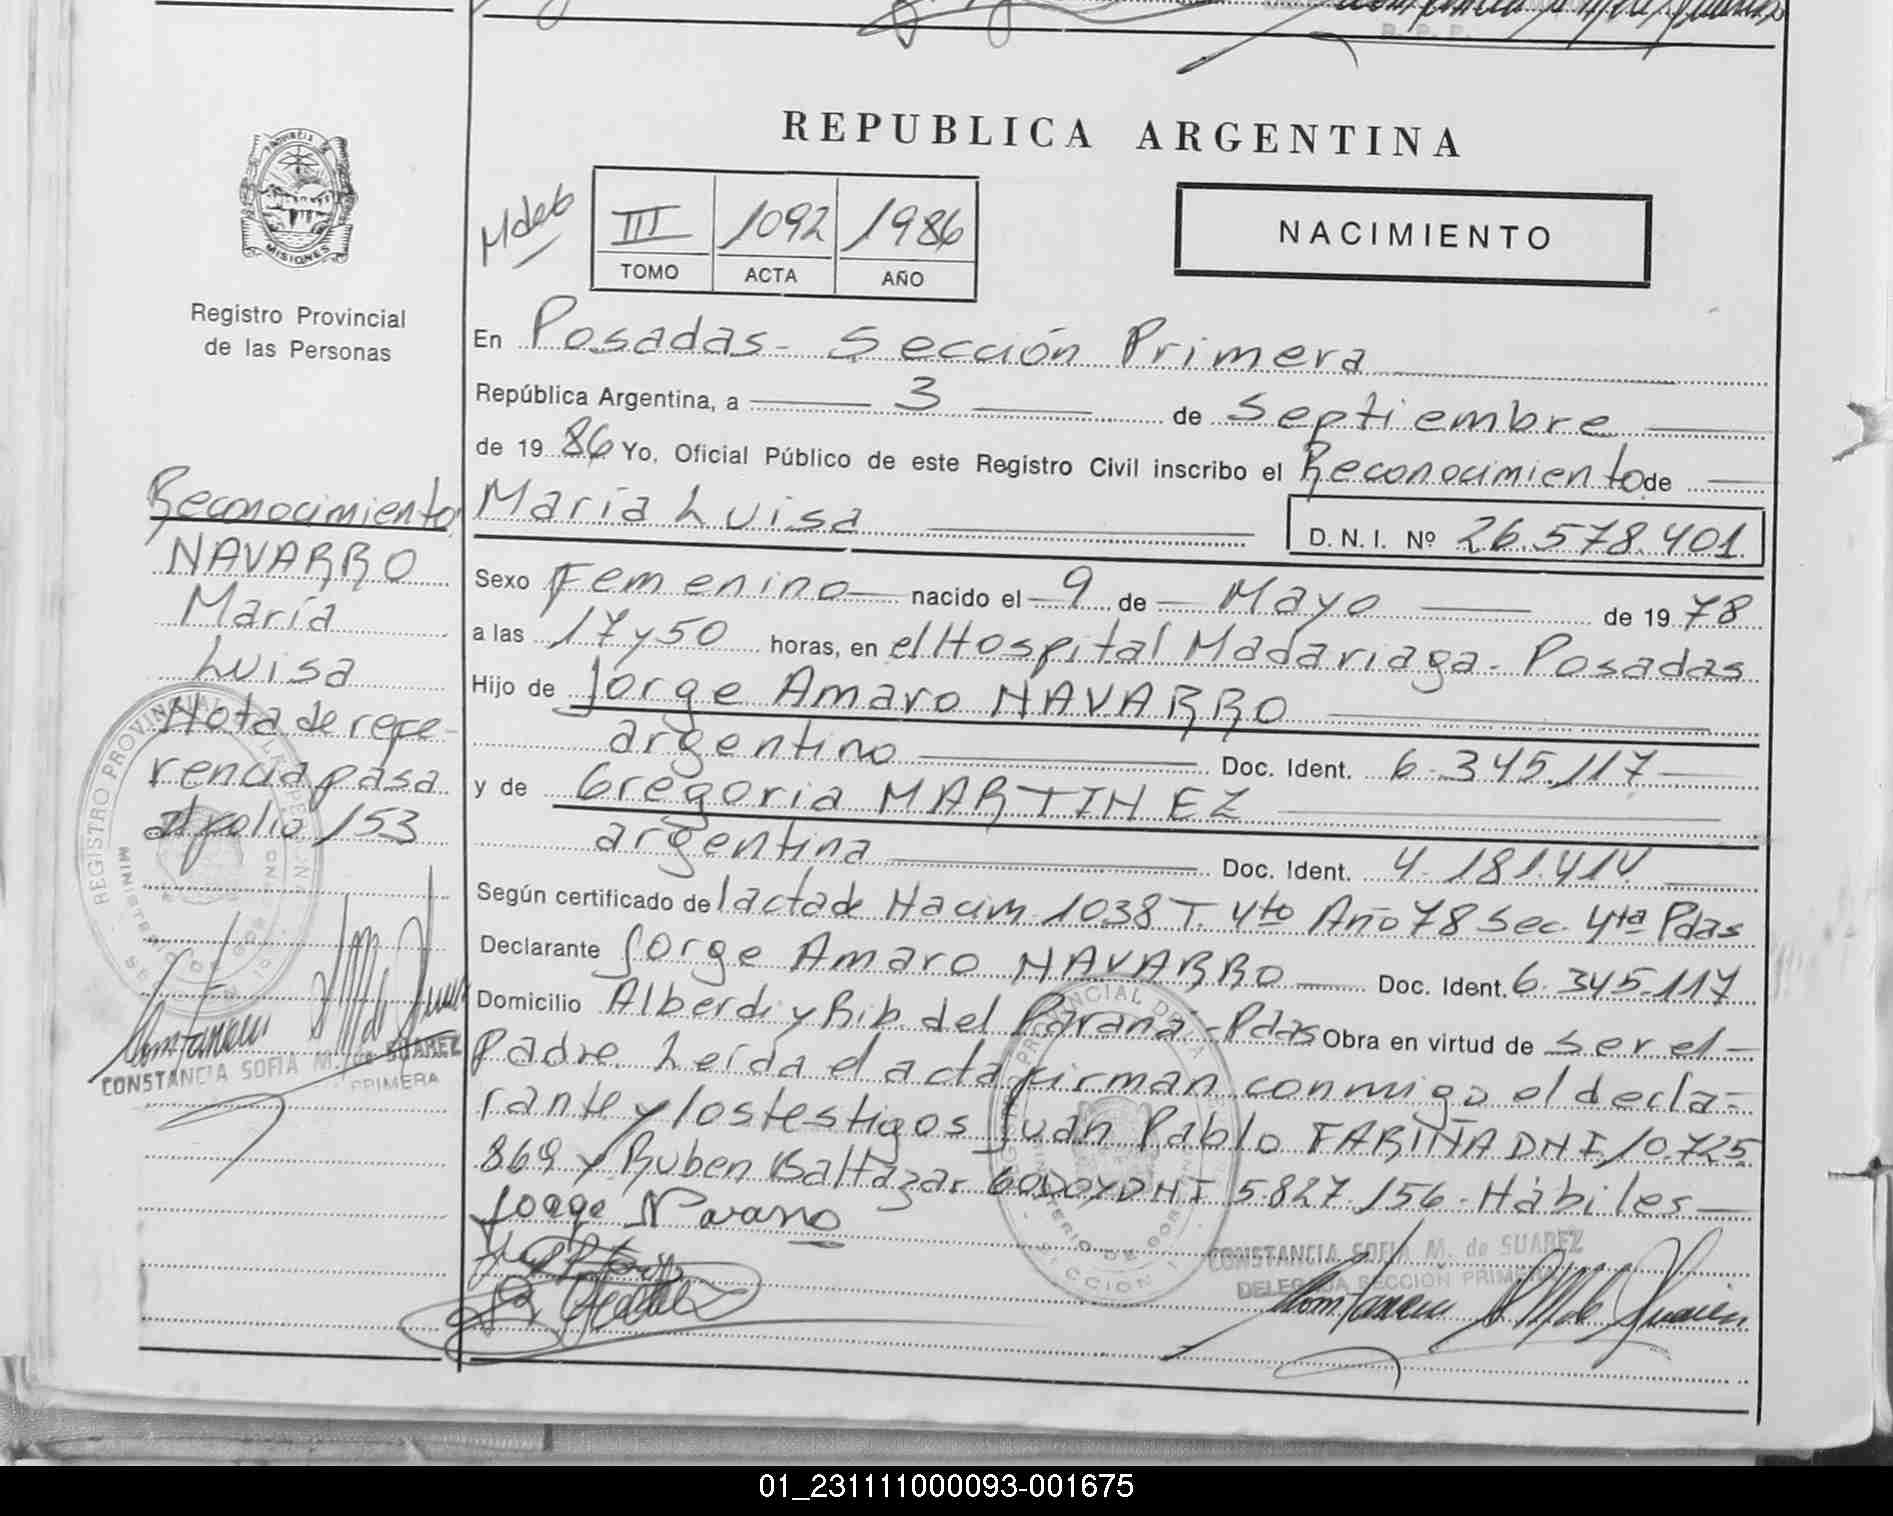 REPUBLICA ARGENTINA
PROVINCIA DE
MISIONES
Registro Provincial
de las Personas
III 1092 1986
TOMO ACTA AÑO
NACIMIENTO
En Posadas - Sección Primera
República Argentina, a 3 de Septiembre
de 19 86 Yo, Oficial Público de este Registro Civil inscribo el Reconocimiento de
María Luisa D.N.I. Nº 26.578.401
Sexo Femenino nacido el 9 de Mayo de 19 78
a las 17 y 50 horas, en el Hospital Madariaga - Posadas
Hijo de Jorge Amaro NAVARRO
argentino Doc. Ident. 6.345.117
y de Gregoria MARTINEZ
argentina Doc. Ident. 4.181.414
Según certificado de l acta de Nacim 1038 T. 4to Año 78 Sec. 4ta Pdas
Declarante Jorge Amaro NAVARRO Doc. Ident. 6.345.117
Domicilio Alberdi y Rib. del Paraná - Pdas Obra en virtud de ser el
Padre. Leída el acta firman conmigo el decla-
rante y los testigos Juan Pablo FARIÑA DNI 10.725.
869 y Ruben Baltazar GODOY DNI 5827.156 - Hábiles
Jorge Navarro
CONSTANCIA SOFIA M. de SUAREZ
DELEGADA SECCIÓN PRIMERA
Reconocimiento
NAVARRO
María
Luisa
Nota de refe-
rencia pasa
al folio 153
CONSTANCIA SOFIA M. de SUAREZ
PRIMERA
01_231111000093-001675